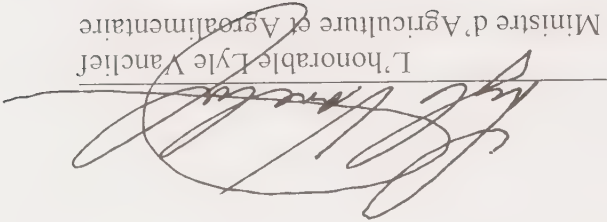 L'honorable Lyle Vanclief
Ministre d'Agriculture et Agroalimentaire